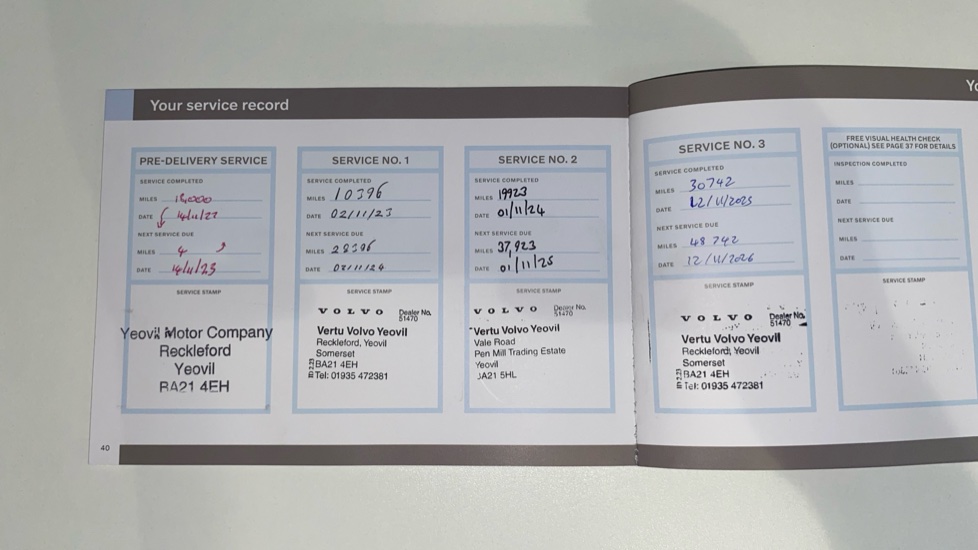 Your service record
Yo
PRE-DELIVERY SERVICE
SERVICE COMPLETED
MILES 18,000
DATE 14/11/22
NEXT SERVICE DUE
MILES 4
DATE 14/11/23
SERVICE STAMP
Yeovil Motor Company
Reckleford
Yeovil
BA21 4EH
SERVICE NO. 1
SERVICE COMPLETED
MILES 10396
DATE 02/11/23
NEXT SERVICE DUE
MILES 28396
DATE 02/11/24
SERVICE STAMP
VOLVO Dealer No.
51470
Vertu Volvo Yeovil
Reckleford, Yeovil
Somerset
BA21 4EH
Tel: 01935 472381
SERVICE NO. 2
SERVICE COMPLETED
MILES 19923
DATE 01/11/24
NEXT SERVICE DUE
MILES 37,923
DATE 01/11/25
SERVICE STAMP
VOLVO Dealer No.
51470
Vertu Volvo Yeovil
Vale Road
Pen Mill Trading Estate
Yeovil
JA21 5HL
SERVICE NO. 3
SERVICE COMPLETED
MILES 30742
DATE 12/11/2025
NEXT SERVICE DUE
MILES 48742
DATE 12/11/2026
SERVICE STAMP
VOLVO Dealer No.
51470
Vertu Volvo Yeovil
Reckleford, Yeovil
Somerset
BA21 4EH
Tel: 01935 472381
FREE VISUAL HEALTH CHECK
(OPTIONAL) SEE PAGE 37 FOR DETAILS
INSPECTION COMPLETED
MILES
DATE
NEXT SERVICE DUE
MILES
DATE
SERVICE STAMP
40